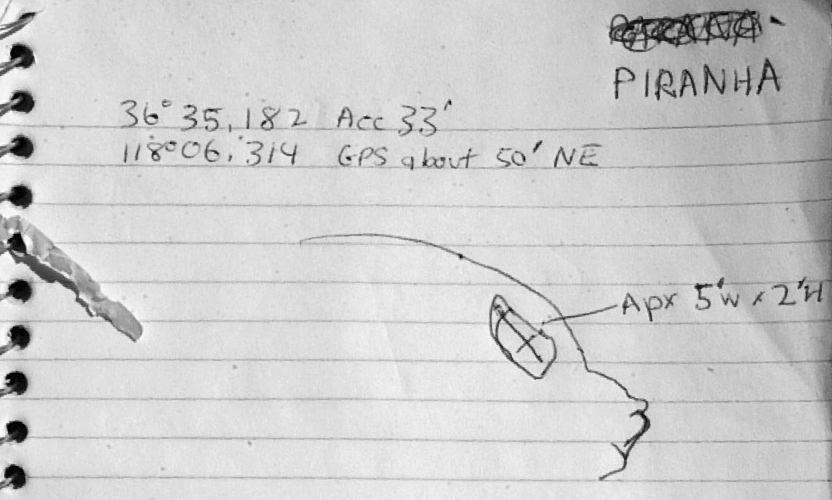 PIRANHA
36° 35,182 Acc 33'
118° 06,314 GPS about 50' NE
Apx 5'W x 2'H